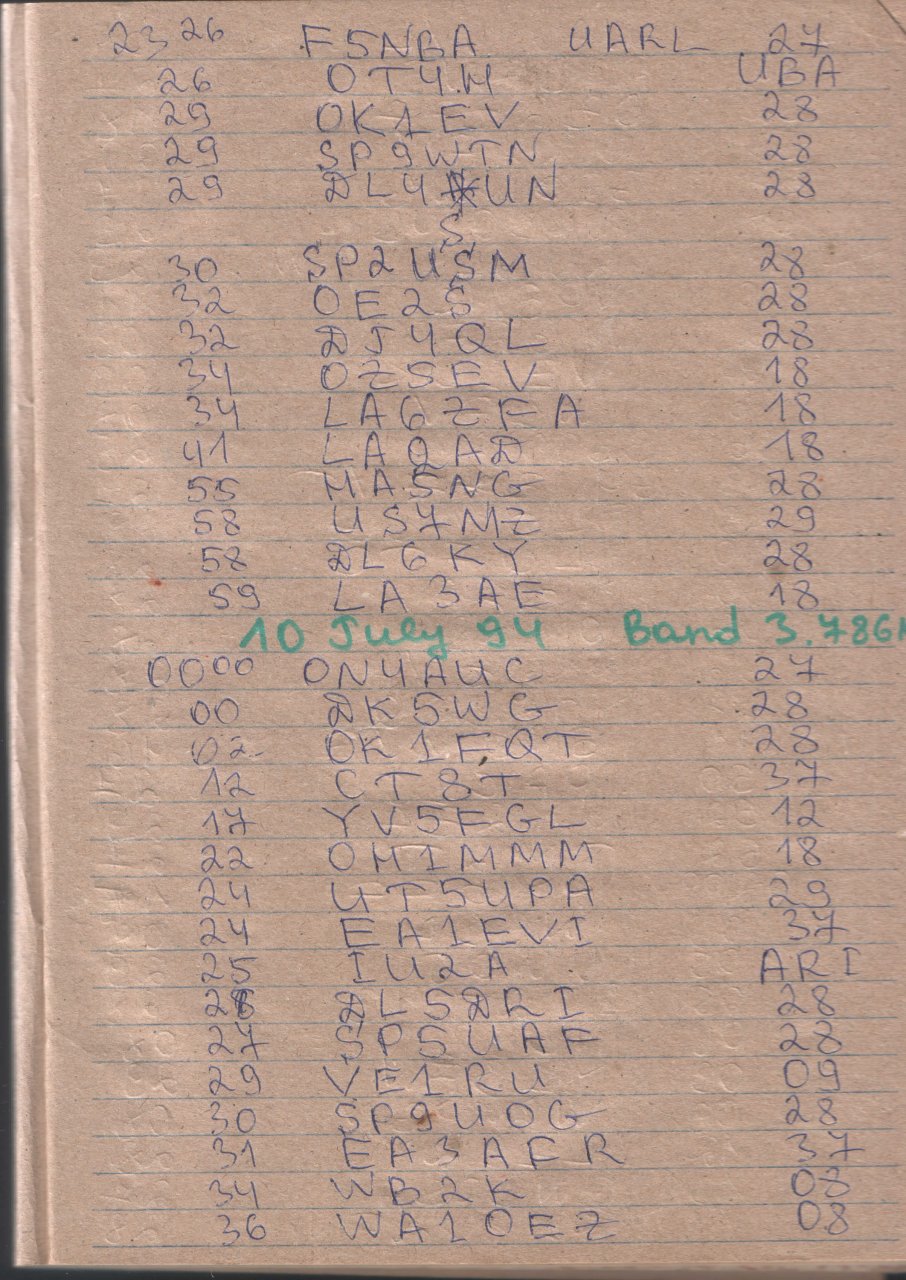 23 26 F5NBA UARL 27
26 OT4H UBA
29 OK1EV 28
29 SP9WTN 28
29 DL4 UN 28
S
30 SP2USM 28
32 OE2S 28
32 DJ4QL 28
34 OZ5EV 18
34 LA6ZFA 18
41 LAQAD 18
55 HA5NG 28
58 US7MZ 29
58 DL6KY 28
59 LA3AE 18
10 July 94 Band 3.786
0000 ON4AUC 27
00 DK5WG 28
02 OK1FQT 28
12 CT8T 37
17 YV5FGL 12
22 OH1MMM 18
24 UT5UPA 29
24 EA1EVI 37
25 IU2A ARI
DL5DRI 28
27 SP5UAF 28
29 VE1RU 09
30 SP9UOG 28
31 EA3AFR 37
34 WB2K 08
36 WA1OEZ 08